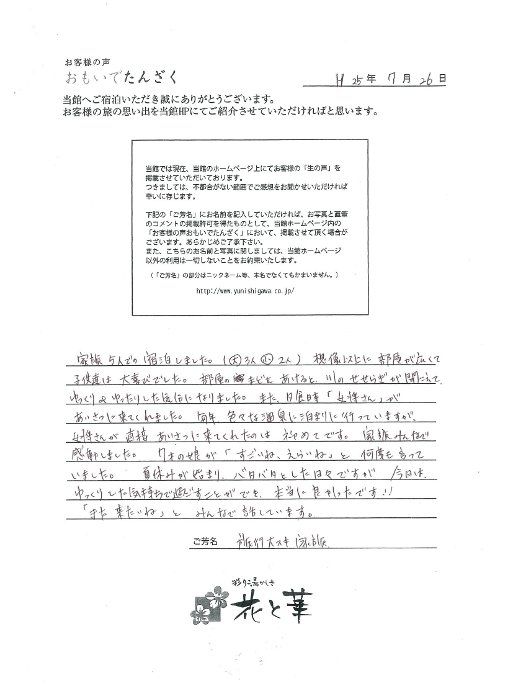 お客様の声
おもいでたんざく
H 25年 7月 26日
当館へご宿泊いただき誠にありがとうございます。
お客様の旅の思い出を当館HPにてご紹介させていただければと思います。
当館では現在、当館のホームページ上にてお客様の「生の声」を
掲載させていただいております。
つきましては、不都合がない範囲でご感想をお聞かせいただければ
幸いに存じます。
下記の「ご芳名」にお名前を記入していただければ、お写真と直筆
のコメントの掲載許可を得たものとして、当館ホームページ内の
「お客様の声おもいでたんざく」において、掲載させて頂く場合が
ございます。あらかじめご了承下さい。
また、こちらのお名前と写真に関しましては、当館ホームページ
以外の利用は一切しないことをお約束いたします。
（「ご芳名」の部分はニックネーム等、本名でなくてもかまいません。）
http://www.yunishigawa.co.jp/
家族5人での宿泊しました。(大3人 小2人) 想像以上に部屋が広くて
子供達は大喜びでした。部屋のまどをあけると、川のせせらぎが聞こえて
ゆっくりゆったりした気分になりました。また、夕食時「女将さん」が
あいさつに来てくれました。毎年 色々な温泉に泊まりに行っていますが、
女将さんが直接 あいさつに来てくれたのは 初めてです。家族みんなで
感動しました。7才の娘が「すごいね、えらいね」と 何度も言って
いました。夏休みが始まり、バタバタとした日々ですが 今日は
ゆっくりした気持ちで過ごすことができ、本当に良かったです!!
「また来たいね」と みんなで話しています。
ご芳名 旅行大スキ家族
彩り湯かしき
花と華